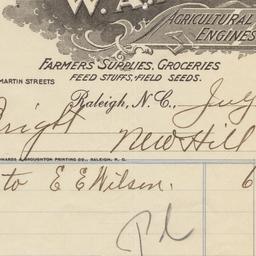 W. A.
AGRICULTURAL
ENGINES
FARMERS' SUPPLIES, GROCERIES
FEED STUFFS, FIELD SEEDS.
MARTIN STREETS
Raleigh, N. C., July
New Hill
EDWARDS & BROUGHTON PRINTING CO., RALEIGH, N. C.
to E E Wilson. 6
Pd